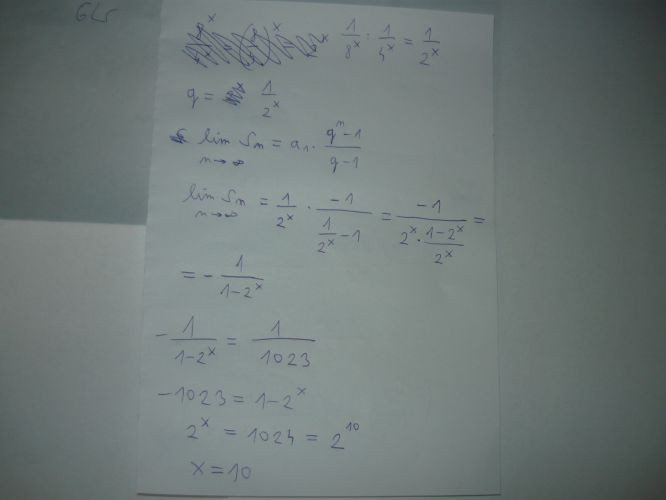 GLS
1/8^x : 1/4^x = 1/2^x
q = 1/2^x
lim Sn = a1 · (q^n - 1)/(q - 1)
n→∞
lim Sn = 1/2^x · (-1)/(1/2^x - 1) = (-1)/(2^x · (1-2^x)/2^x) =
n→∞
= - 1/(1-2^x)
- 1/(1-2^x) = 1/1023
-1023 = 1-2^x
2^x = 1024 = 2^10
x = 10